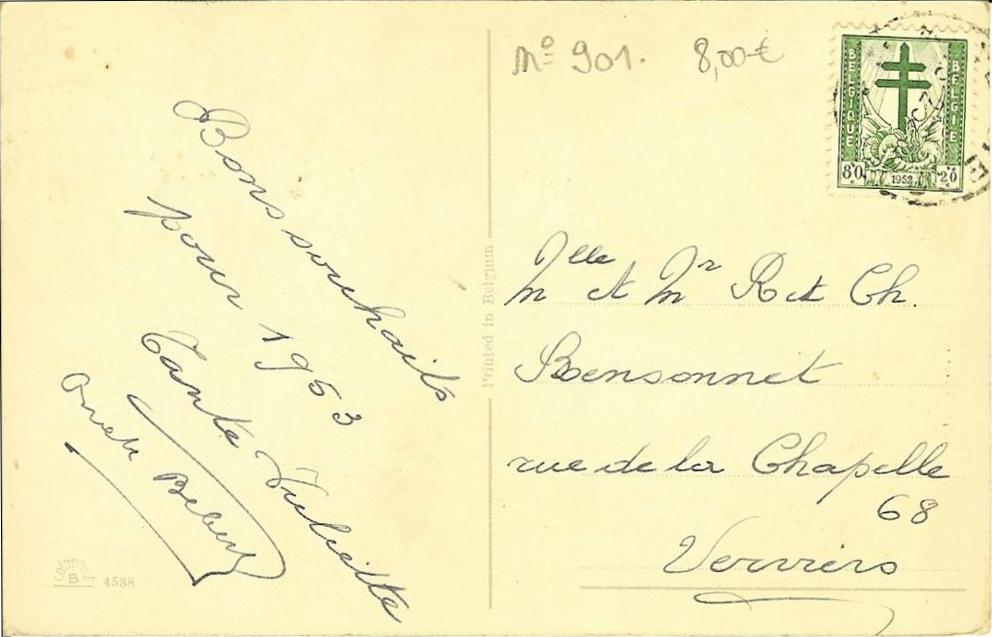 Bons souhaits
pour 1953
Tante Juliette
Oncle Bebert
B 4538
Printed in Belgium
No 901. 8,00 €
BELGIQUE
BELGIE
80 1952 20
Mlle et Mr R et Ch.
Bensonnet
rue de la Chapelle
68
Verviers